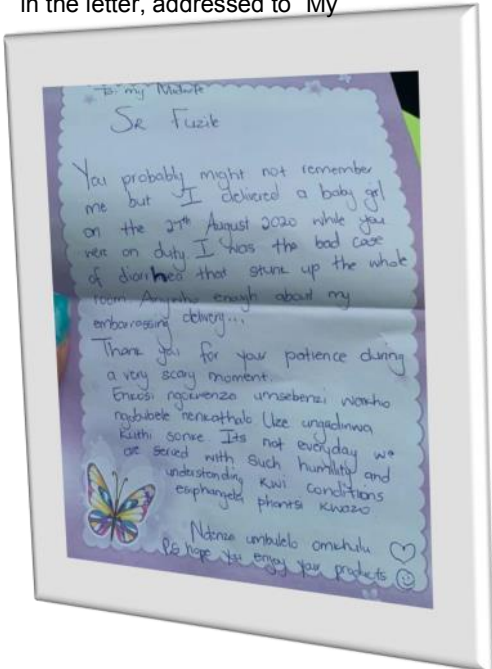 in the letter, addressed to "My
To: my Midwife
Sr Fuzile
You probably might not remember
me but I delivered a baby girl
on the 27th August 2020 while you
were on duty. I was the bad case
of diarrhea that stunk up the whole
room Anywho enough about my
embarrassing delivery...
Thank you for your patience during
a very scary moment.
Enkosi ngokwenza umsebenzi wakho
ngobubele nenkathalo Uze ungadinwa
kuthi sonke. Its not everyday we
are served with such humility and
understanding kwi conditions
eniphangela phantsi kwazo
Ndenza umbulelo omkhulu
PS hope you enjoy your products